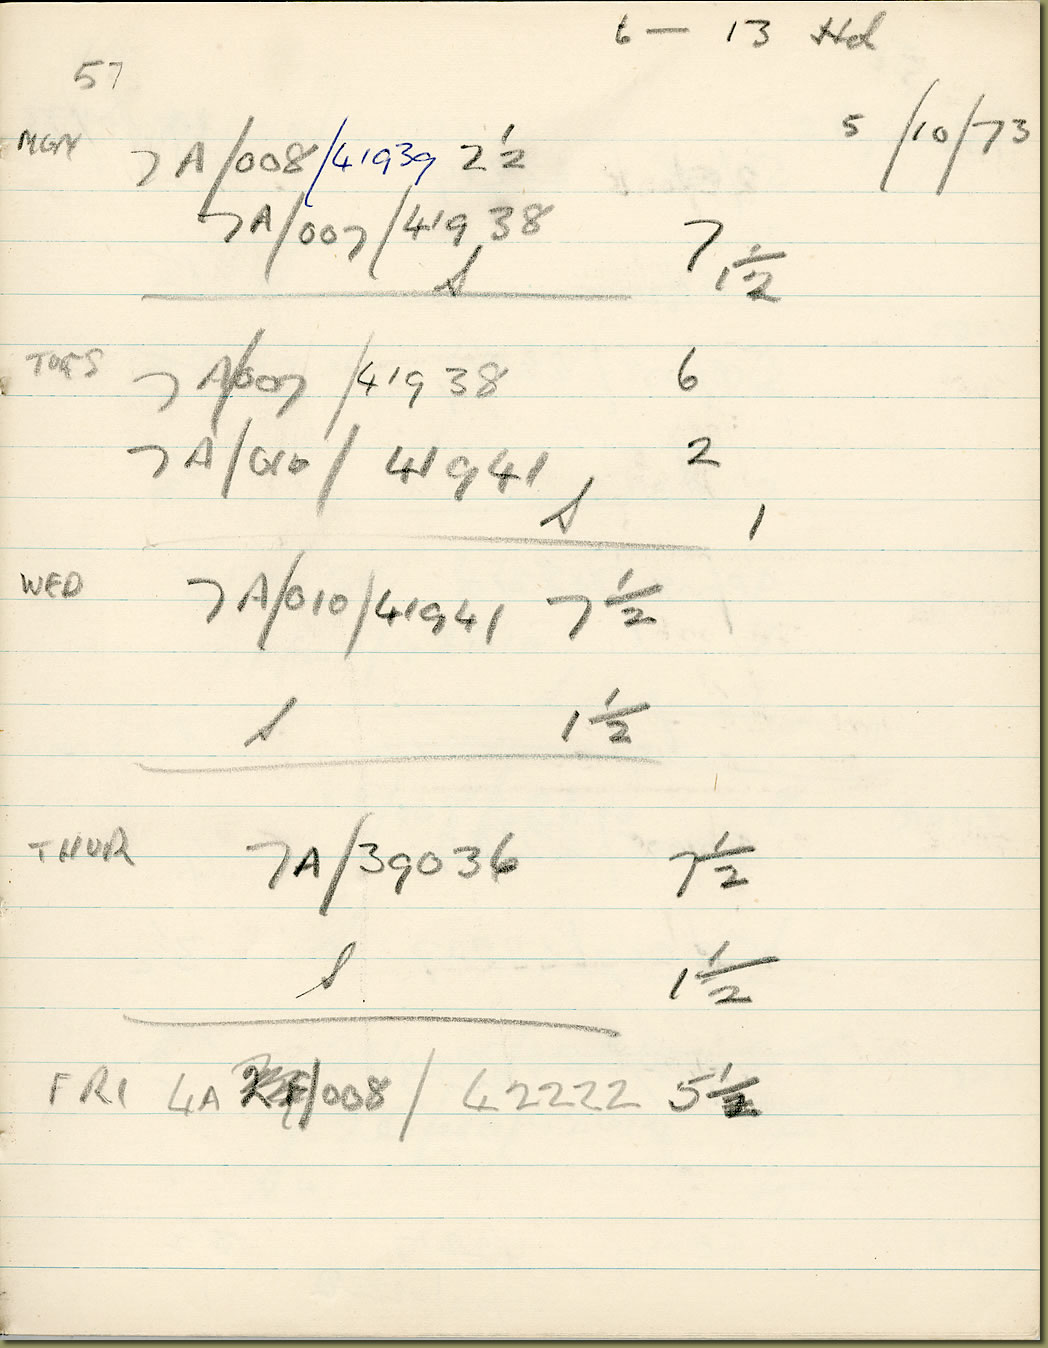 6 — 13
57
5/10/73
MON 7A/008/41939 2 1/2
7A/007/41938 7
S 1 1/2
TUES 7A/007/41938 6
7A/010/41941 2
S 1
WED 7A/010/41941 7 1/2
S 1 1/2
THUR 7A/39036 7 1/2
S 1 1/2
FRI 4A /008/42222 5 1/2